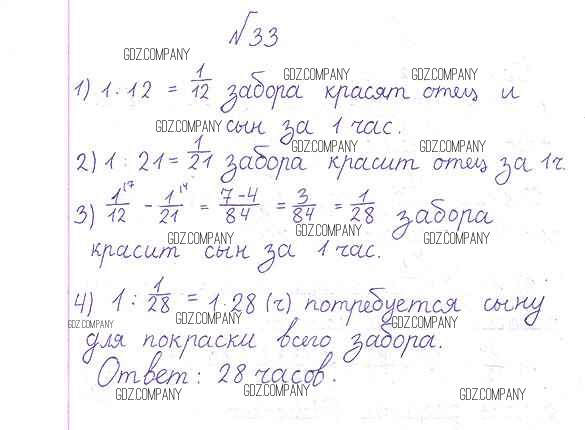 №33
GDZ.COMPANY
GDZ.COMPANY GDZ.COMPANY
1) 1·12 = 1/12 забора красят отец и
GDZ.COMPANY
сын за 1 час.
GDZ.COMPANY GDZ.COMPANY
2) 1 : 21 = 1/21 забора красит отец за 1ч.
3) 1^17/12 - 1^14/21 = 7-4/84 = 3/84 = 1/28 забора
GDZ.COMPANY GDZ.COMPANY GDZ.COMPANY
красит сын за 1 час.
4) 1 : 1/28 = 1·28 (ч) потребуется сыну
GDZ.COMPANY GDZ.COMPANY GDZ.COMPANY
для покраски всего забора.
Ответ: 28 часов.
GDZ.COMPANY GDZ.COMPANY GDZ.COMPANY